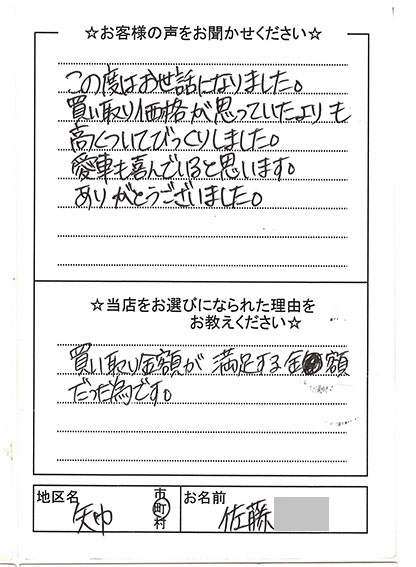 ☆お客様の声をお聞かせください☆
この度はお世話になりました。
買い取り価格が思っていたよりも
高くついてびっくりしました。
愛車も喜んでいると思います。
ありがとうございました。
☆当店をお選びになられた理由を
お教えください☆
買い取り金額が満足する金額
だった為です。
地区名 矢巾 市町村 お名前 佐藤